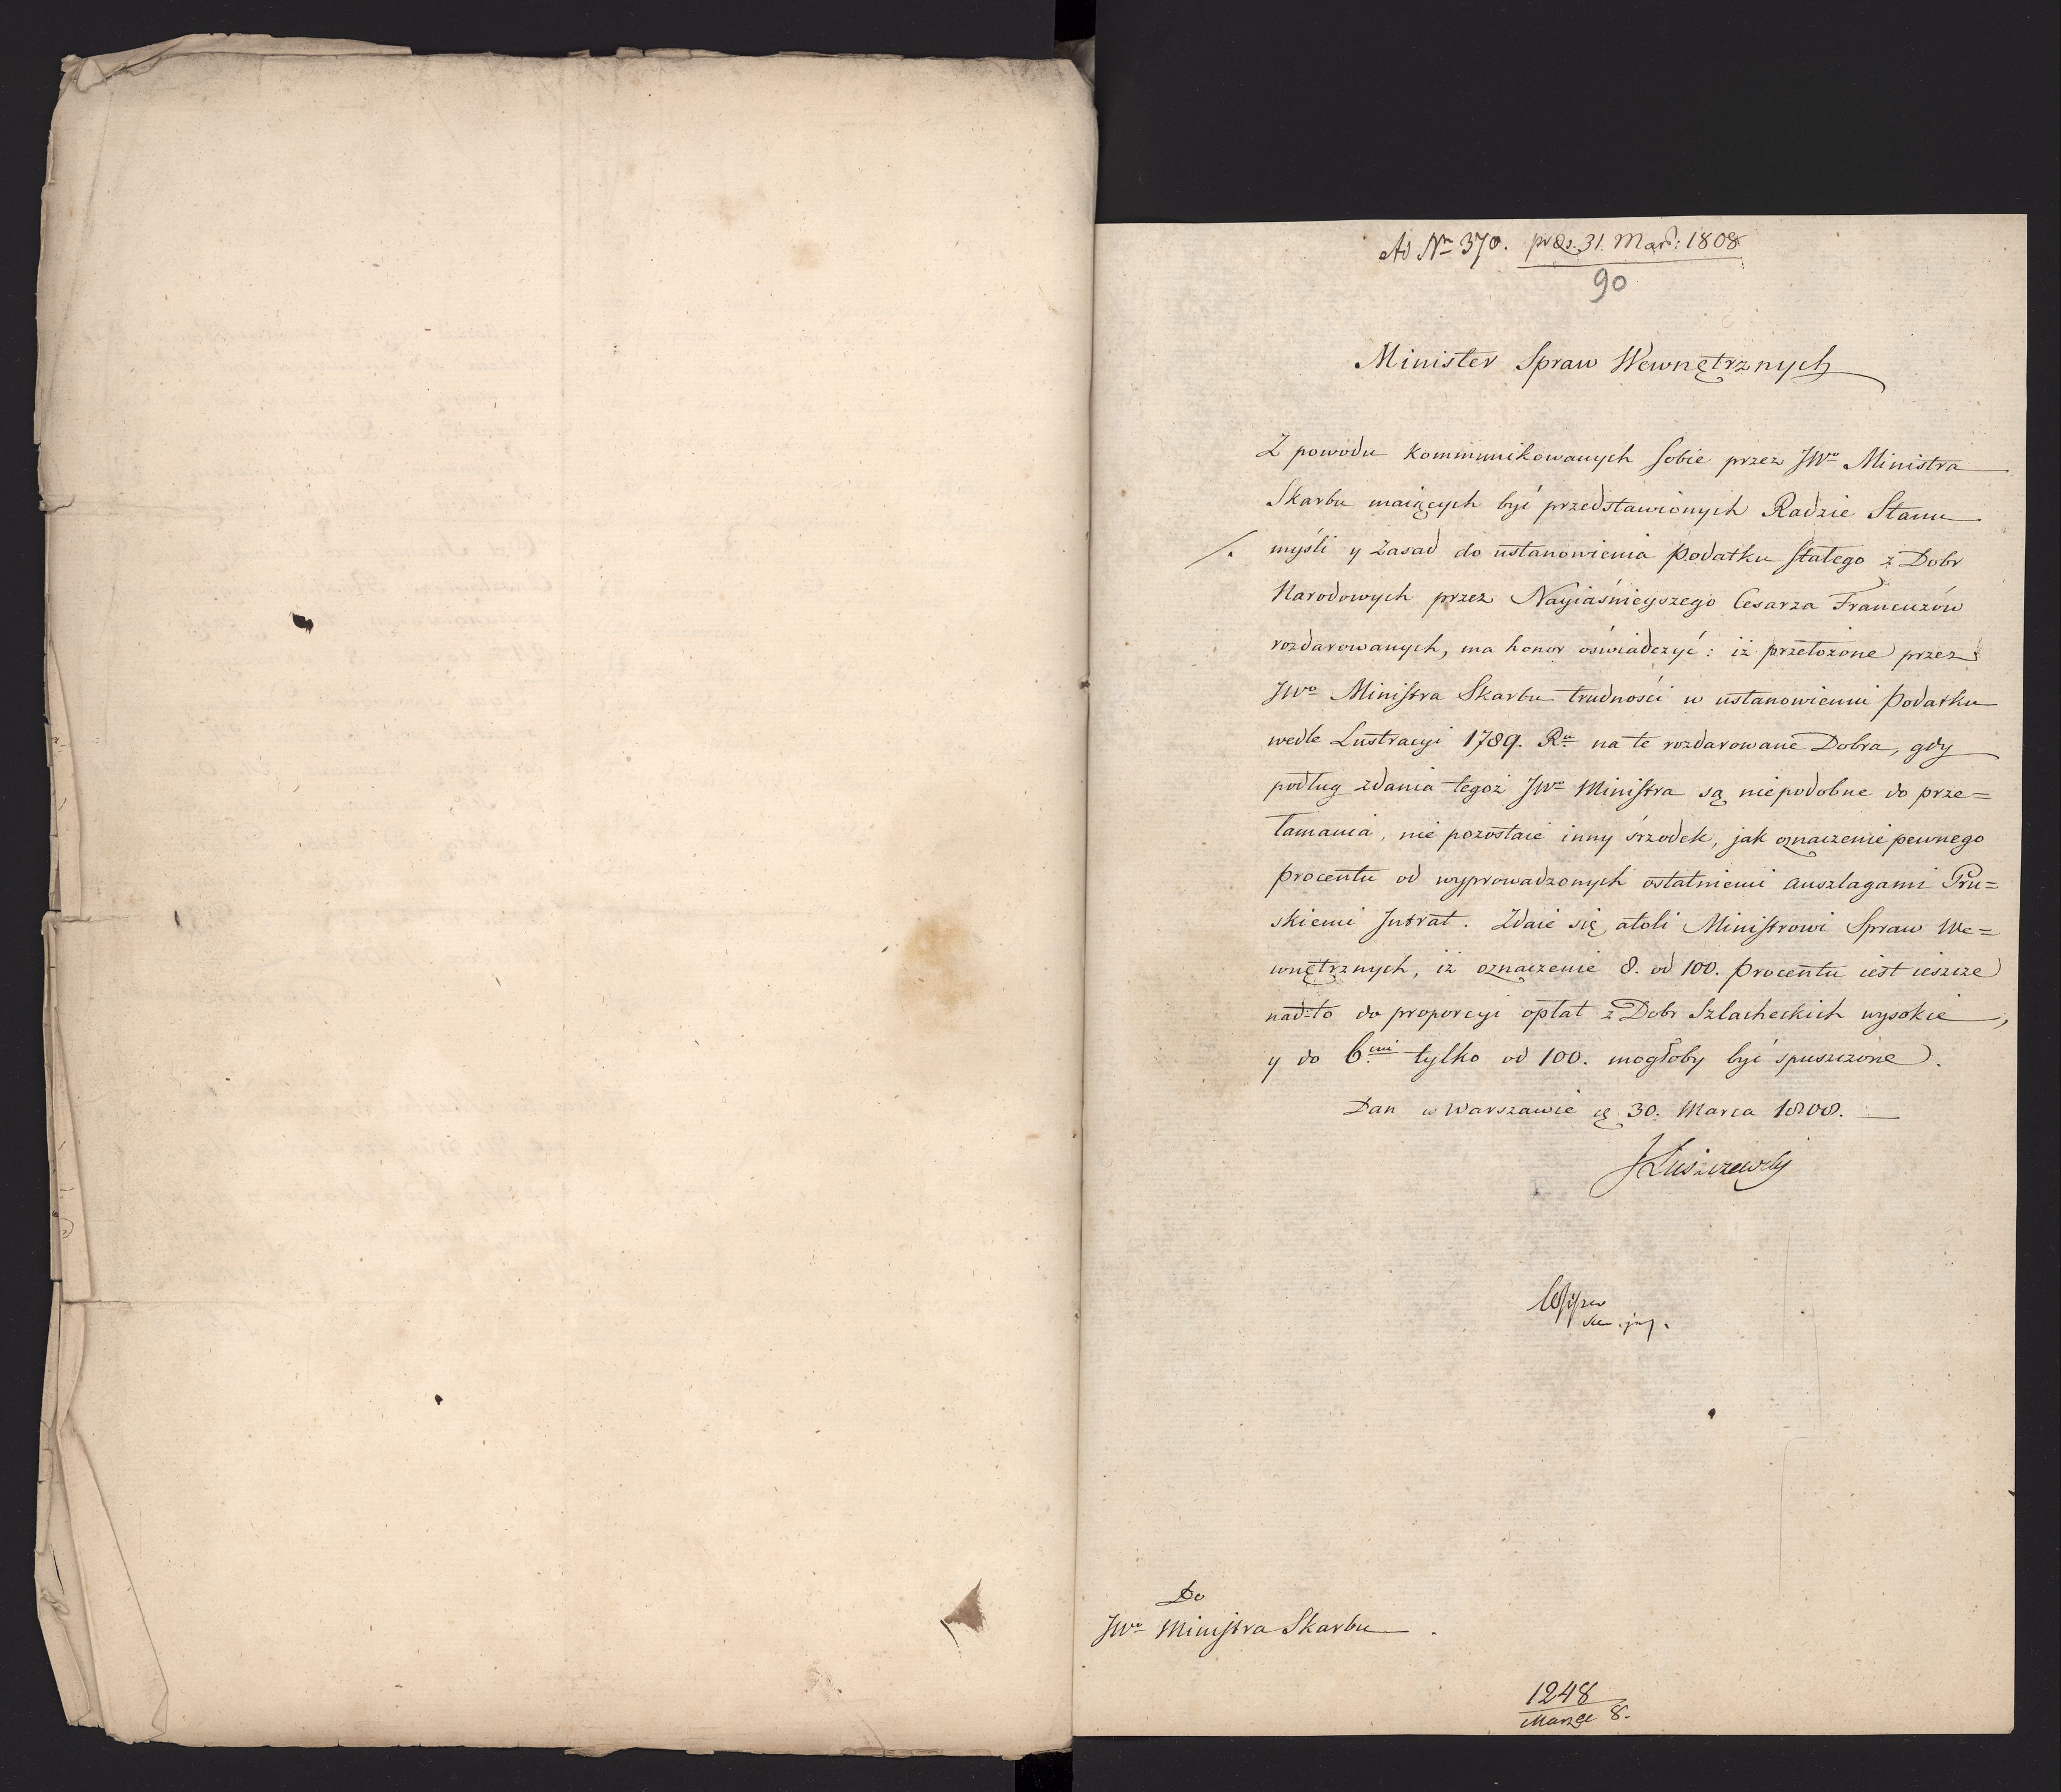 Ad Nr 370. præs. 31. Mart: 1808
90
Minister Spraw Wewnętrznych
Z powodu kommunikowanych sobie przez JWo Ministra
Skarbu maiących być przedstawionych Radzie Stanu
/. myśli y Zasad do ustanowienia podatku stałego z Dobr
Narodowych przez Nayiaśnieyszego Cesarza Francuzów
rozdarowanych, ma honor oświadczyć: iż przełożone przez
JWo Ministra Skarbu trudności w ustanowieniu podatku
wedle Lustracyi 1789. Ru na te rozdarowane Dobra, gdy
podług zdania tegoż JWo Ministra są niepodobne do prze=
łamania, nie pozostaie inny śrzodek, jak oznaczenie pewnego
procentu od wyprowadzonych ostatniemi auszlagami Pru=
skiemi Jntrat. Zdaie się atoli Ministrowi Spraw We=
wnętrznych, iż oznaczenie 8. od 100. procentu iest ieszcze
nad-to do proporcyi opłat z Dobr Szlacheckich wysokie,
y do 6.ciu tylko od 100. mogłoby być spuszczone.
Dan w Warszawie d. 30. Marca 1808.
JŁuszczewski
Do
JWo Ministra Skarbu.
1248
Marca 8.